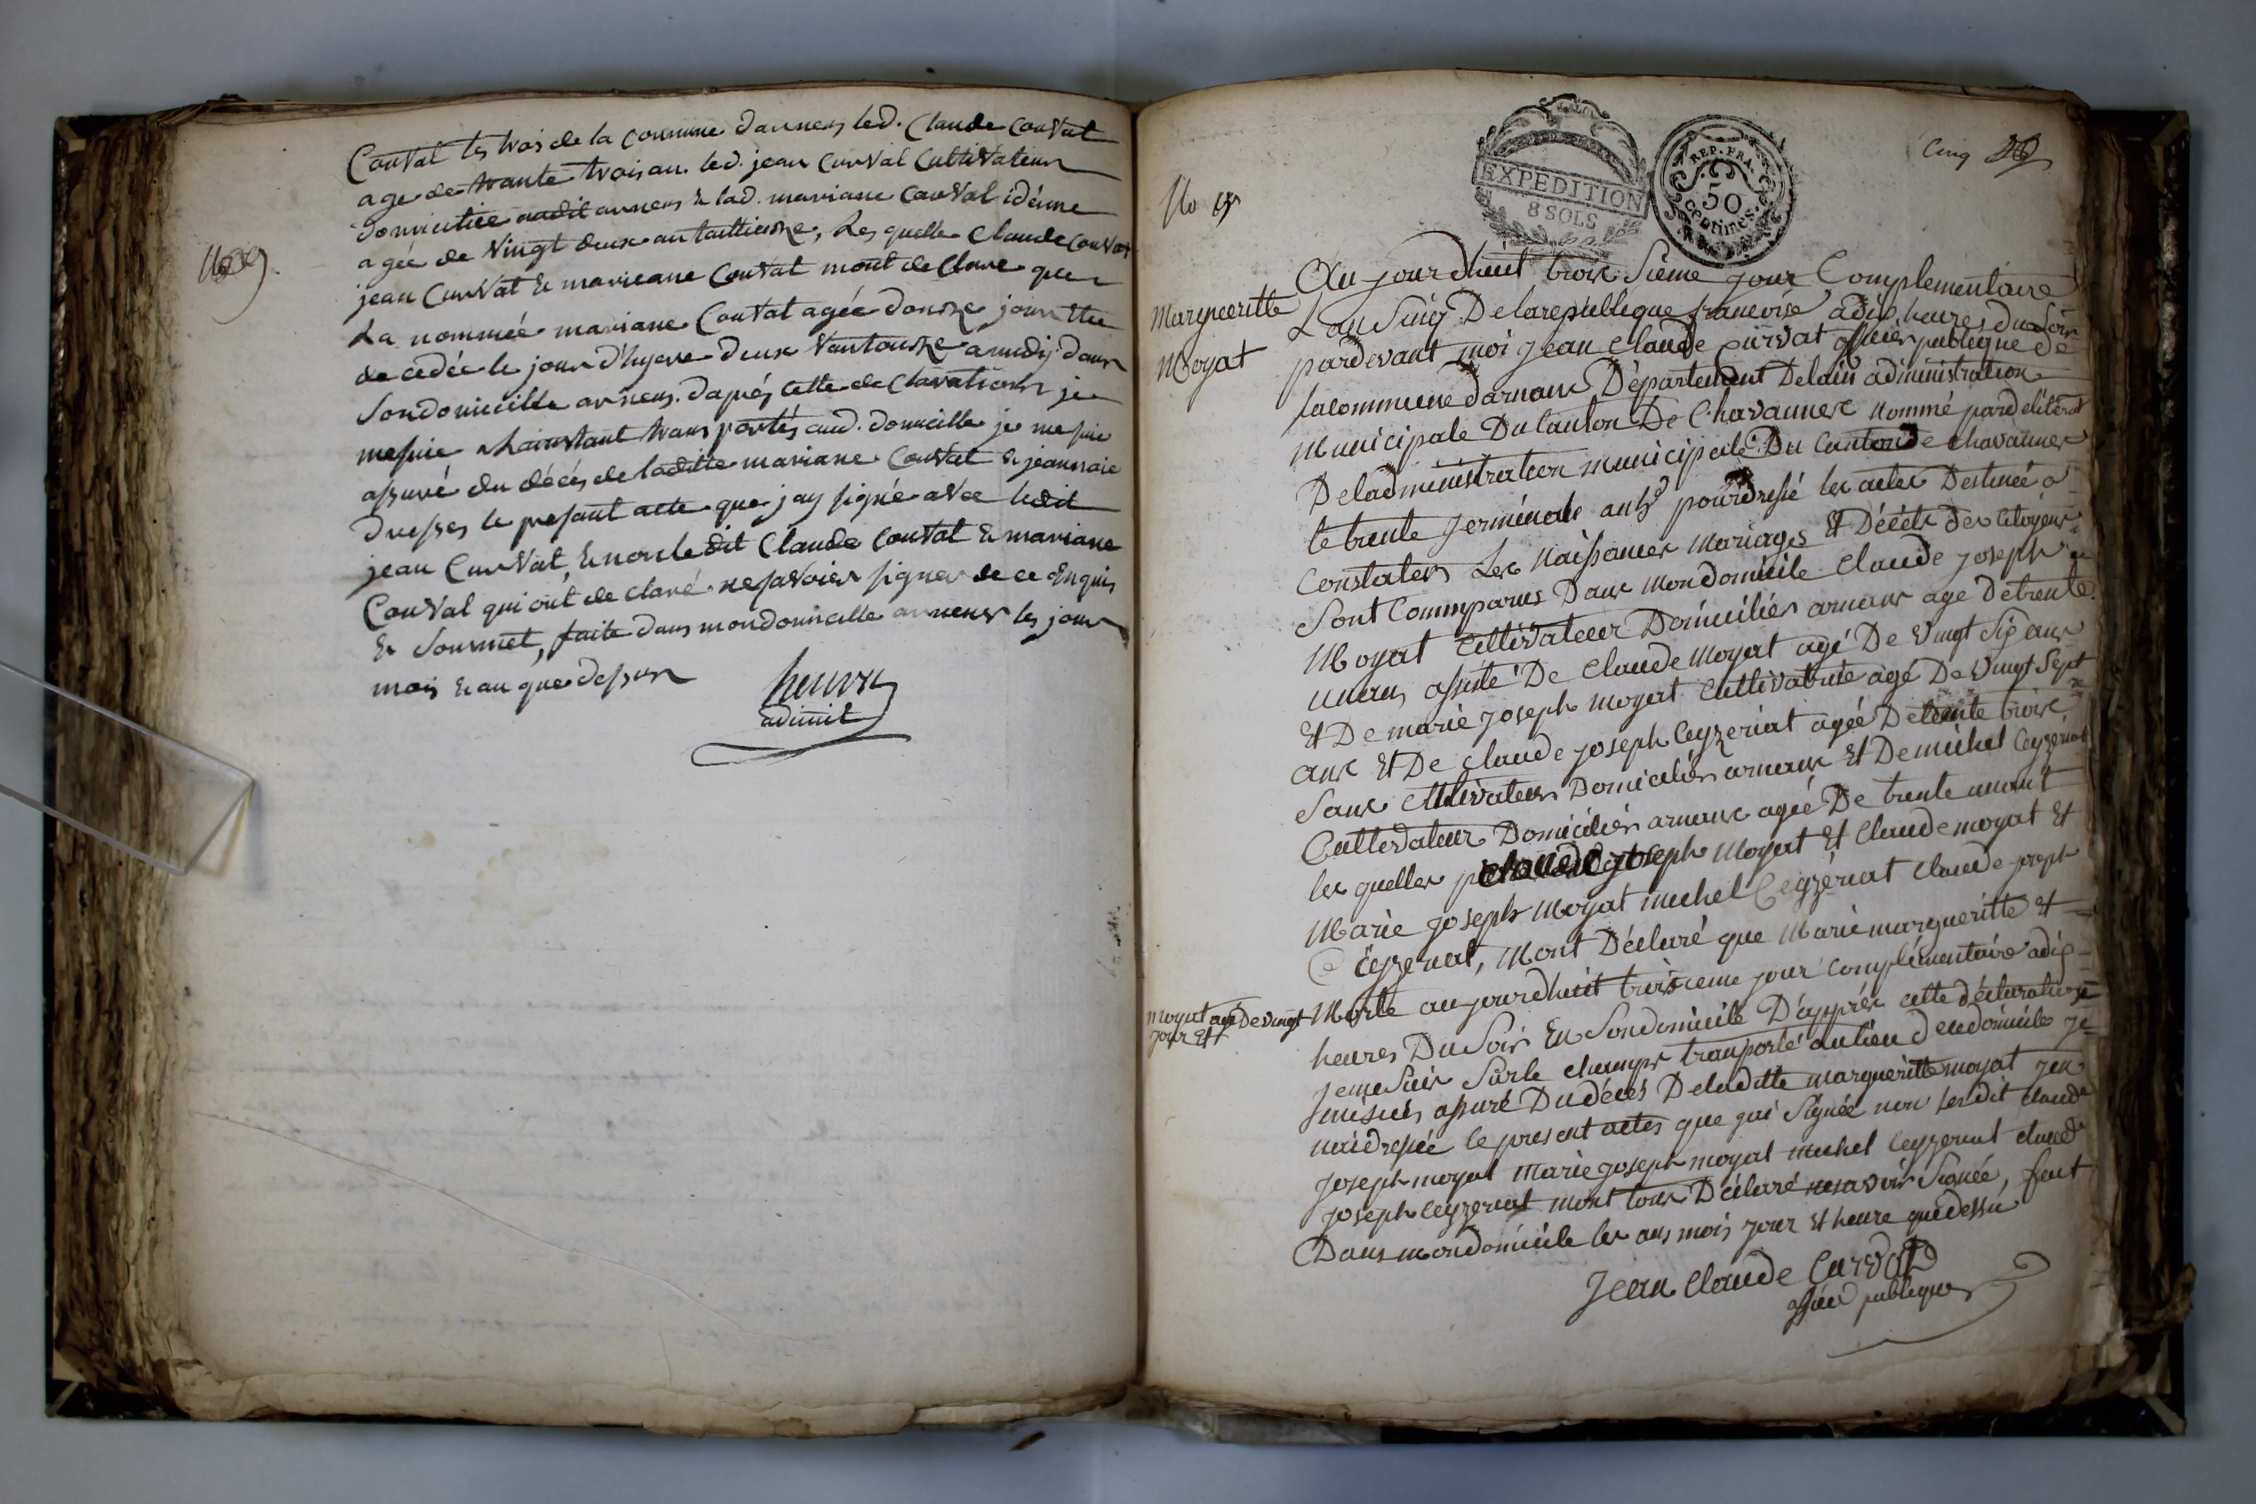 Convat les trois de la commune darnens led. Claude Convat
age de trante trois an. led. jean Curvat Cultivateur
domicilie audit arnens & lad. mariane Convat idéme
agée de vingt deux an taillieuse, Les quelle Claude Convat
jean Curvat & marieane Convat mont de Clare que
La nommée mariane Convat agée donze jour ette
de cedée le jour d'hyere deux Vantouse a midy dans
Son domicille arnens. daprés cette de Claration je
me suie a Lainstant transportés aud. domicille je me suie
assuré du décés de laditte mariane Convat & jeannaie
dresses le presant acte que jay signée avec ledit
jean Curvat, & non le dit Claude Convat & mariane
Convat qui ont de claré ne savoier signer de ce Enquis
& Sommet, faite dans mon domicille arnens les jour
mois & an que dessus
admit
Cinq
EXPEDITION
8 SOLS
REP. FRA.
50
centimes
No
Margueritte
Moyat
Au jourdhuit troix sieme jour Complementaire
L'an Sinq De la republique francoise a dix heures du Soir
pardevant moi Jean Claude Curvat officier publique de
la commune darnans Département Delain administration
Municipale Du Canton De Chavannex nommé par deliterat
De ladministration municipale Du Canton de Chavannes
le trente Jerminale an 5e pour dressé les actes Destinée a
Constater Les Naissances Mariages Et Décéts des Citoyens
Sont Commparus Dans Mon domicile Claude Joseph
Moyat Cultivateur Domiciliér arnans age De trente
unans assité De Claude Moyat agé De vingt Six ans
Et De marie Joseph Moyat Cultivatrise agé De vingt Sept
ans Et De Claude joseph Ceyzeriat agée De trente troix
Sans Cultivateur Domicilier arnans Et De michel Ceyzeriat
Cultivateur Domicilier arnans agée De trente unant
les quelles Claude joseph Moyat Et Claude moyat Et
Marie Joseph Moyat michel Ceyzériat Claude joseph
Ceyzeriat, Mont Déclaré que Marie margueritte Et
moyat agé De vingt
jour Et
Morte au jourdhuit troisieme jour complémentaire a dix
heures Du Soir En Son domicile D'apprés cette déclaration
Je me Suis Sur le champs transporté au lieu deu domicile je
me suis assuré Du décés De laditte margueritte moyat Jen
nai dressée le present actes que jai Signée non les dit claude
Joseph moyat Marie joseph moyat michel Ceyzeriat claude
Joseph Ceyzeriat mont tous Déclaré ne savoir Signée, fait
Dans mon domicile les ans mois jour Et heure que dessu
Jean Claude Curvat
officié publique